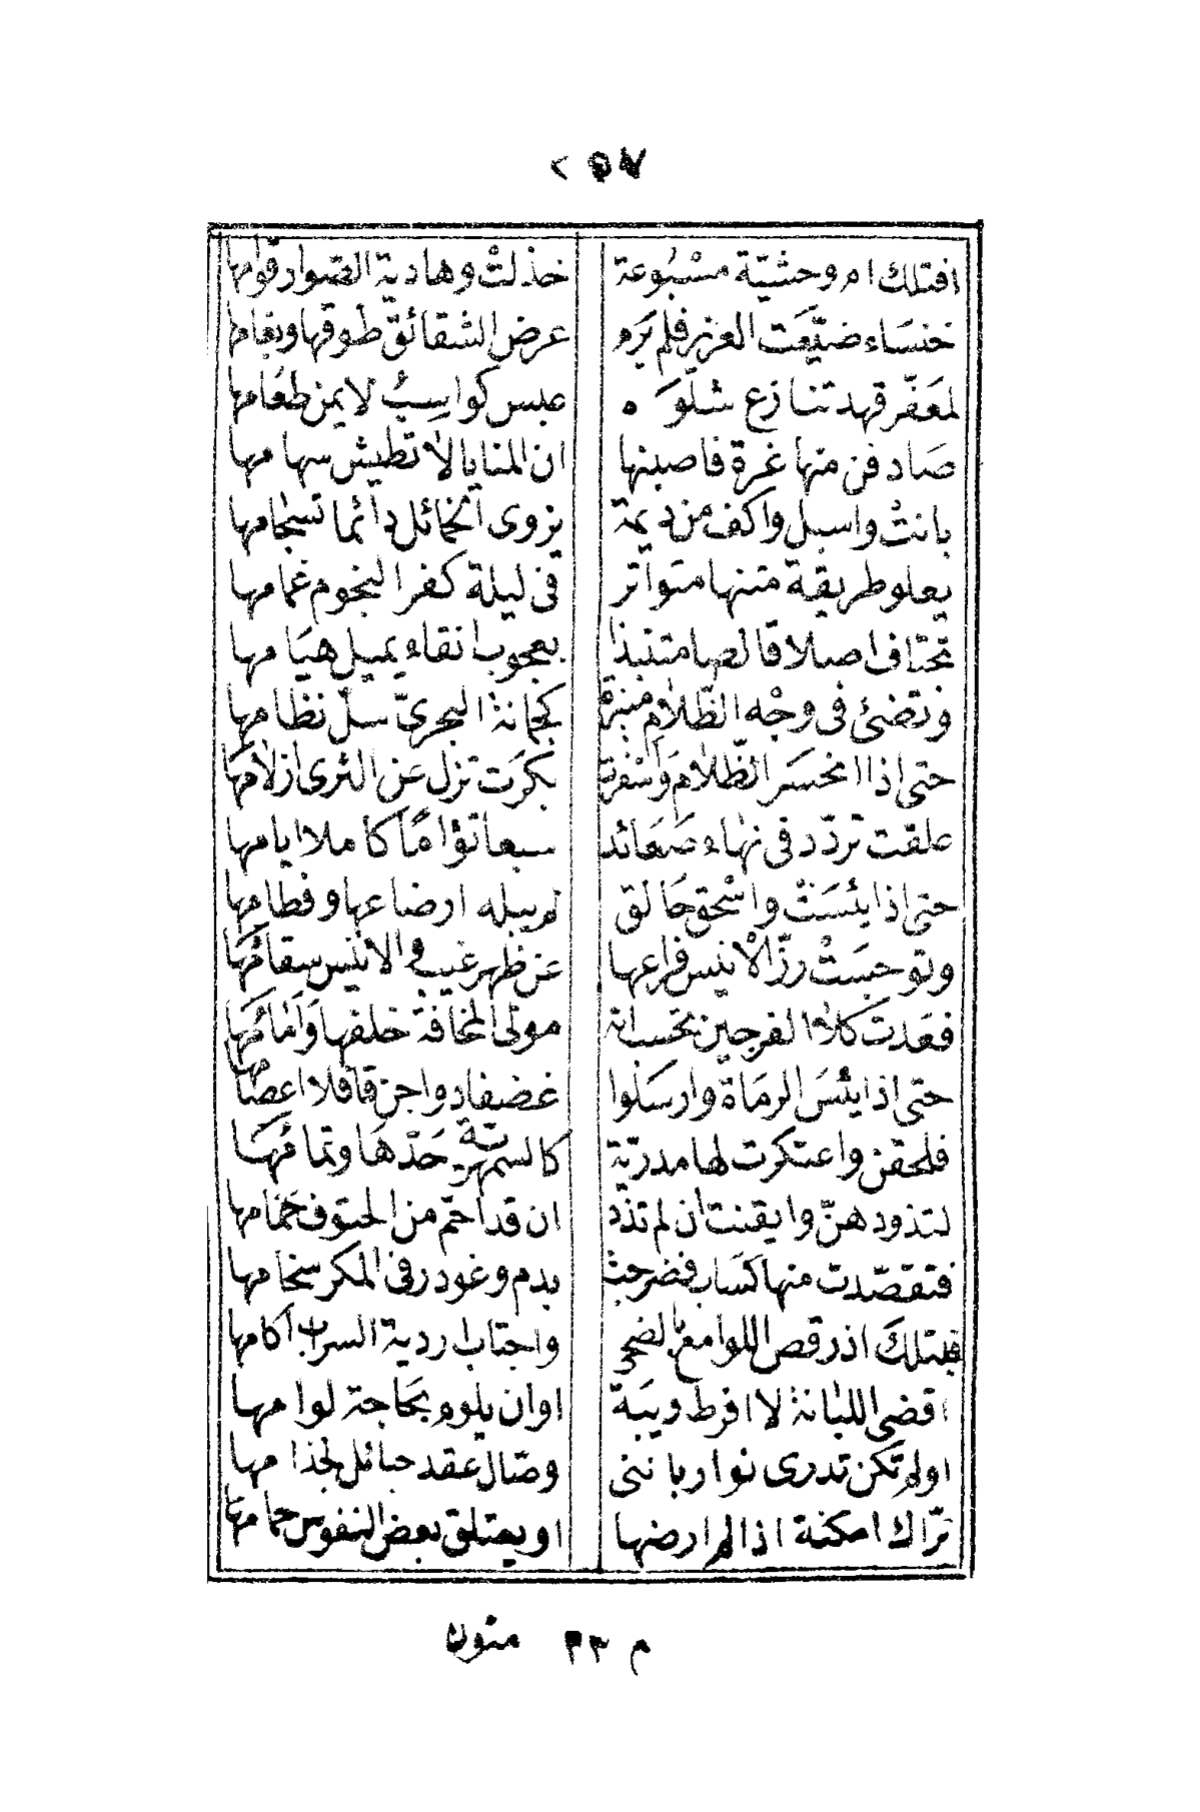 ٢٥٧
افتلك ام وحشيّة مسْبُوعة خذلتْ وهادية الصّوار قوامها
خنسَاء ضيّعَت الغزيز فلم يَرم عرض الشقائق طوقها وبغامها
لمعَفّر قهد تنازع شلوَه غبس كواسِبُ لا يمن طعَامها
صَادفن منها غرة فاصبنها ان المنايا لا تطيش سهامها
باتتْ واسبل واكف من ديمة يزوى الخمائل دائما تسجامها
يعلو طريقة متنها متواتر فى ليلة كفر النجوم غمامها
تجتاف اصلا قالصا متنبذا بعجوب انقاء يميل هيَامها
وتضئ فى وجْه الظّلام منيرة كجمانة البحرىّ سلّ نظامها
حتى اذا انحسَر الظّلام وَاسْفرت بكرَت تزل عن الثرى ازلامهَا
علقت تردّد فى نهاء صَعَائد سبعا تؤامًا كاملا ايامها
حتى اذا يئسَتْ واسْحق حَالق لم يبله ارضاعها وفطامها
وتوجسَتْ رزّ الْانيس فراعها عن ظهر غيب والانيس سقامُهَا
فعَدت كلا الفرجين تحسب انه مولى المخافة خلفها وَامَامُهَا
حتى اذا يئسَ الرمَاة وارسَلوا غضفا دواجن قافلا اعصَامها
فلحقن واعتكرت لها مدريّة كالسمهريّة حَدّهَا وتمامُهَا
لتذودهنّ وايقنت ان لم تذُد ان قد احَم من الحتوف حمَامها
فتقصّدت منها كسَاب فضرجت بدم وغودر فى المكر سخامها
فبتلكَ اذ رقص اللوامع بالضحى واجتاب اردية السراب اكامها
اقضى اللبانة لا افرط ريبَة او ان يلوم بحَاجة لوامها
اولم تكن تدرى نوار باننى وصّال عقد حبائل جذامها
ترّاك امكنة اذا لم ارضها او يعتلق بعض النفوس حمامها
م ٣٣ متون